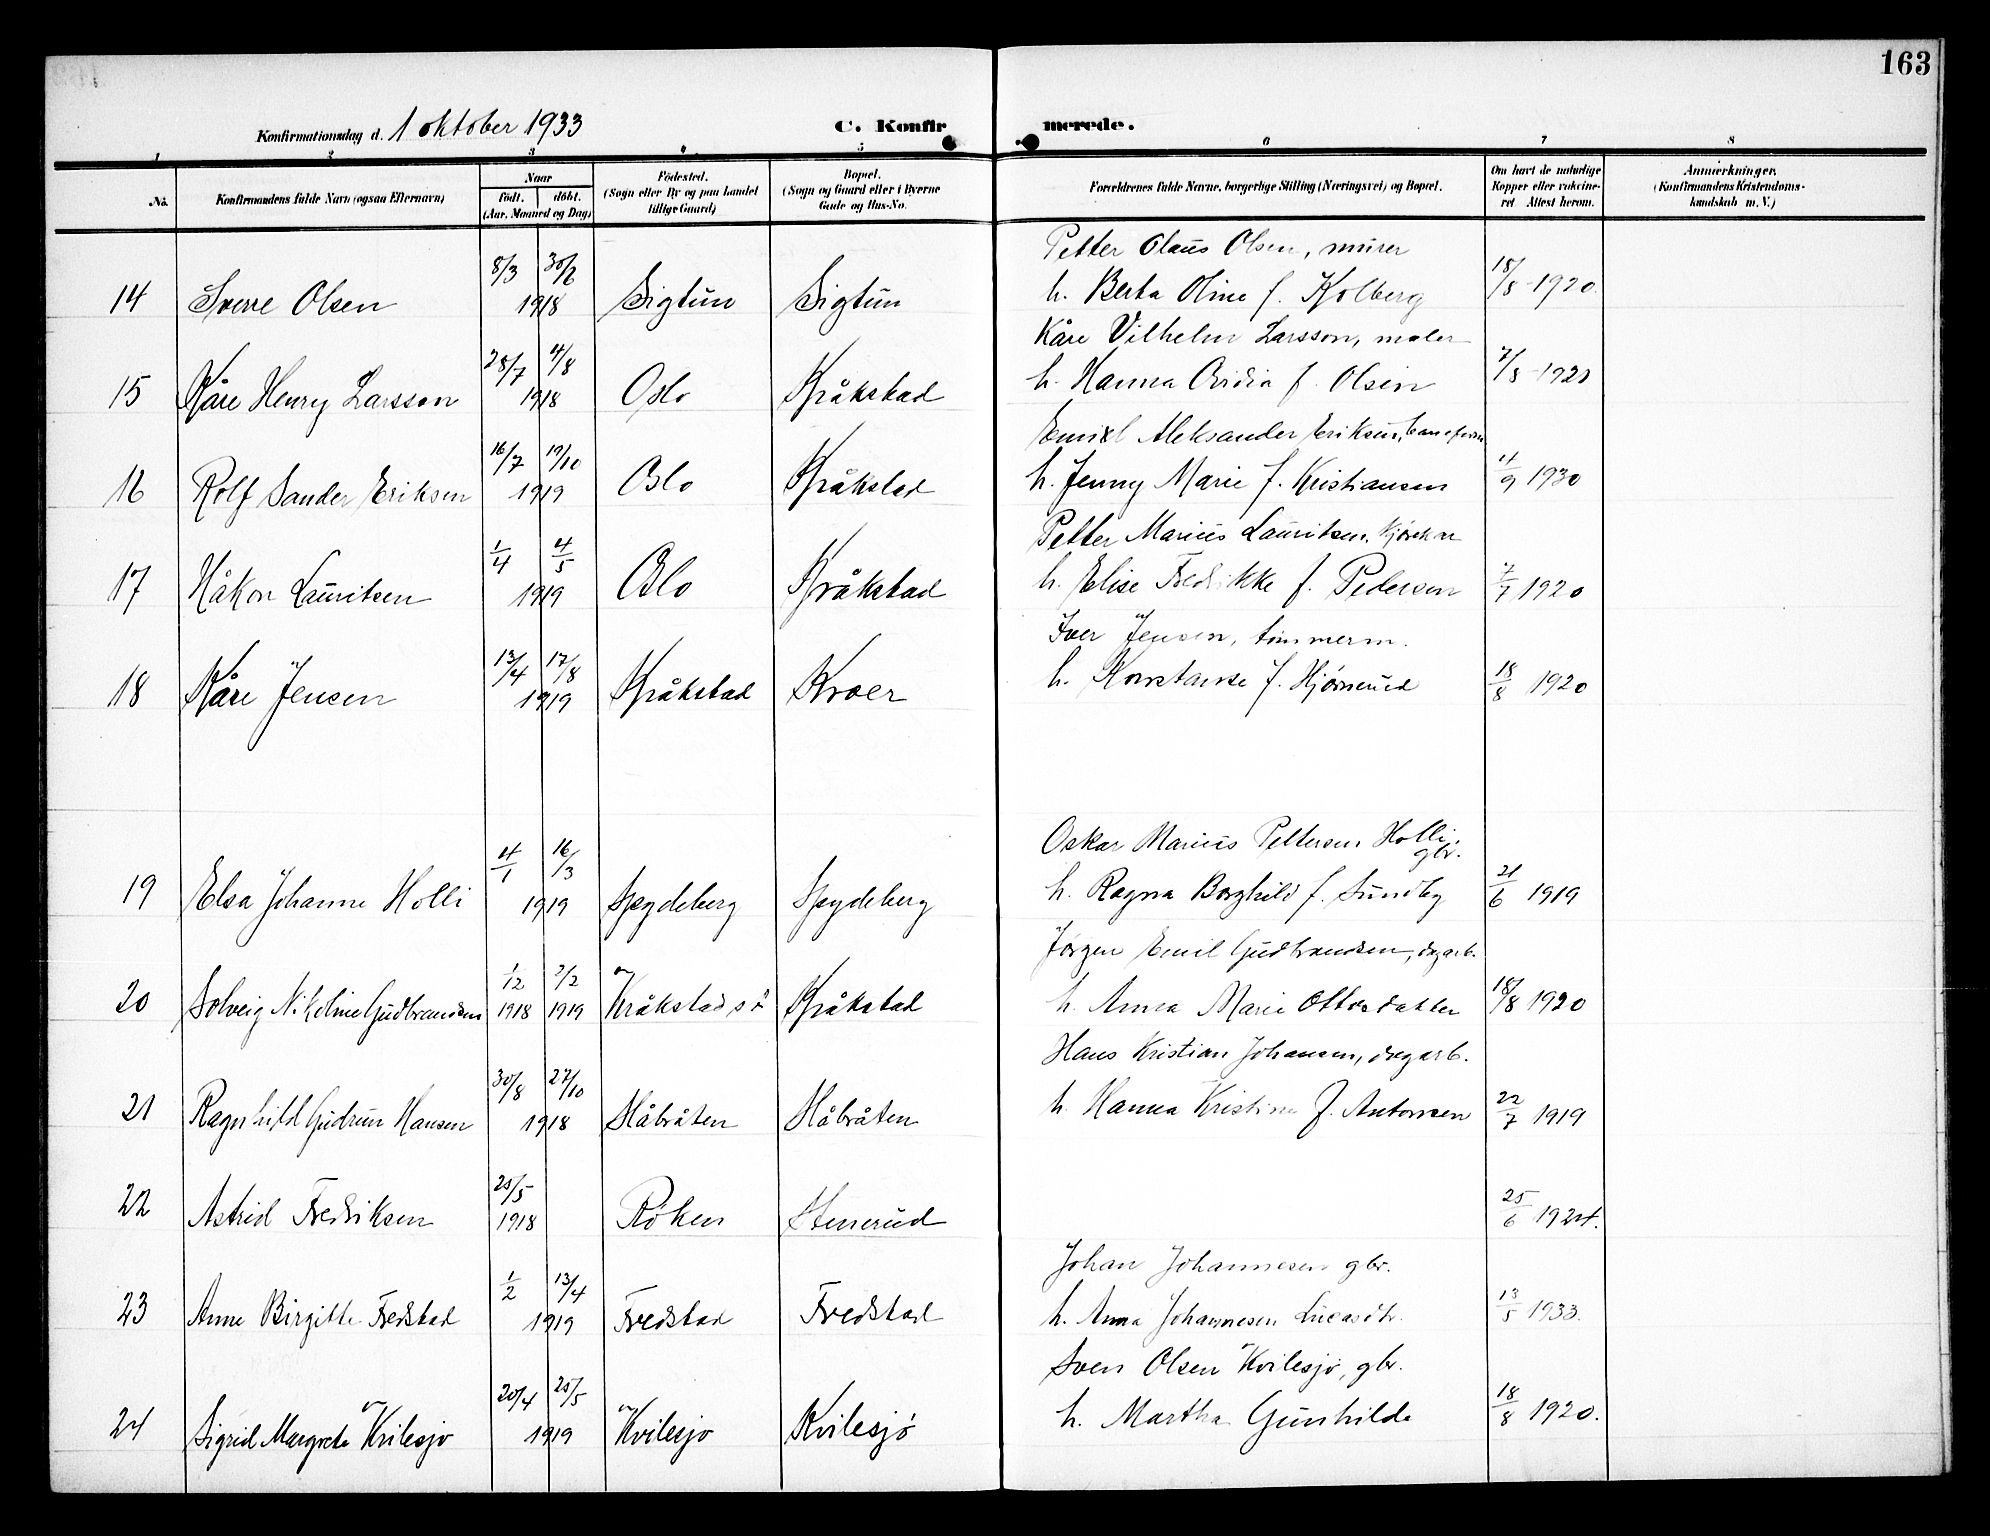 163
Konfirmationsdag d. 1 oktober 1933 C. Konfirmerede.
1 2 3 4 5 6 7 8
No. Konfirmandens fulde Navn (ogsaa Efternavn) Naar født. døbt. (Aar, Maaned og Dag) Fødested. (Sogn eller By og paa Landet tillige Gaard) Bopæl. (Sogn og Gaard eller i Byerne Gade og Hus-No. Forældrenes fulde Navne, borgerlige Stilling (Næringsvei) og Bopæl. Om havt de naturlige Kopper eller vaksineret Attest herom. Anmærkninger. (Konfirmandens Kristendomskundskab m. V.)
Petter Olaus Olsen, murer
14 Sverre Olsen 8/3 30/6 1918 Sigtun Sigtun h. Berta Oline f. Kolberg 18/8 - 1920.
Kåre Vilhelm Larsson, maler
15 Kåre Henry Larsson 28/7 4/8 1918 Oslo Kråkstad h. Hanna Ovidia f. Olsen 7/8 - 1920
Emil Aleksander Eriksen,
16 Rolf Sander Eriksen 16/7 19/10 1919 Oslo Kråkstad h. Jenny Marie f. Kristiansen 4/9 1930
Petter Marius Lauritsen,
17 Håkon Lauritsen 1/4 4/5 1919 Oslo Kråkstad h. Elise Fredrikke f. Pedersen 7/7 1920
Iver Jensen, tømmerm.
18 Kåre Jensen 13/4 17/8 1919 Kråkstad Kroer h. Konstanse f. Hjørnerud 18/8 1920
Oskar Marius Pettersen Holli, gbr.
19 Elsa Johanne Holli 4/1 16/3 1919 Spydeberg Spydeberg h. Ragna Borghild f. Sundby 21/6 1919
Jørgen Emil Gudbrandsen, dagarb.
20 Solveig Nikoline Gudbrandsen 1/12 1918 2/2 1919 Kråkstad s ö Kråkstad h. Anna Marie Ottosdatter 18/8 1920
Hans Kristian Johansen, dagarb.
21 Ragnhild Gudrun Hansen 30/8 27/10 1918 Håbråten Håbråten h. Hanna Kristine f. Antonsen 22/7 1919
22 Astrid Fredriksen 25/5 1918 Röken Stenerud 25/6 1924.
Johan Johannesen gbr.
23 Anne Birgitte Fredstad 1/2 13/4 1919 Fredstad Fredstad h. Anna Johannesen Lucasdtr. 13/5 1933.
Sven Olsen Kvilesjö, gbr.
24 Sigrid Margrete Kvilesjö 20/4 25/5 1919 Kvilesjö Kvilesjö h. Martha Gunhilde 18/8 1920.